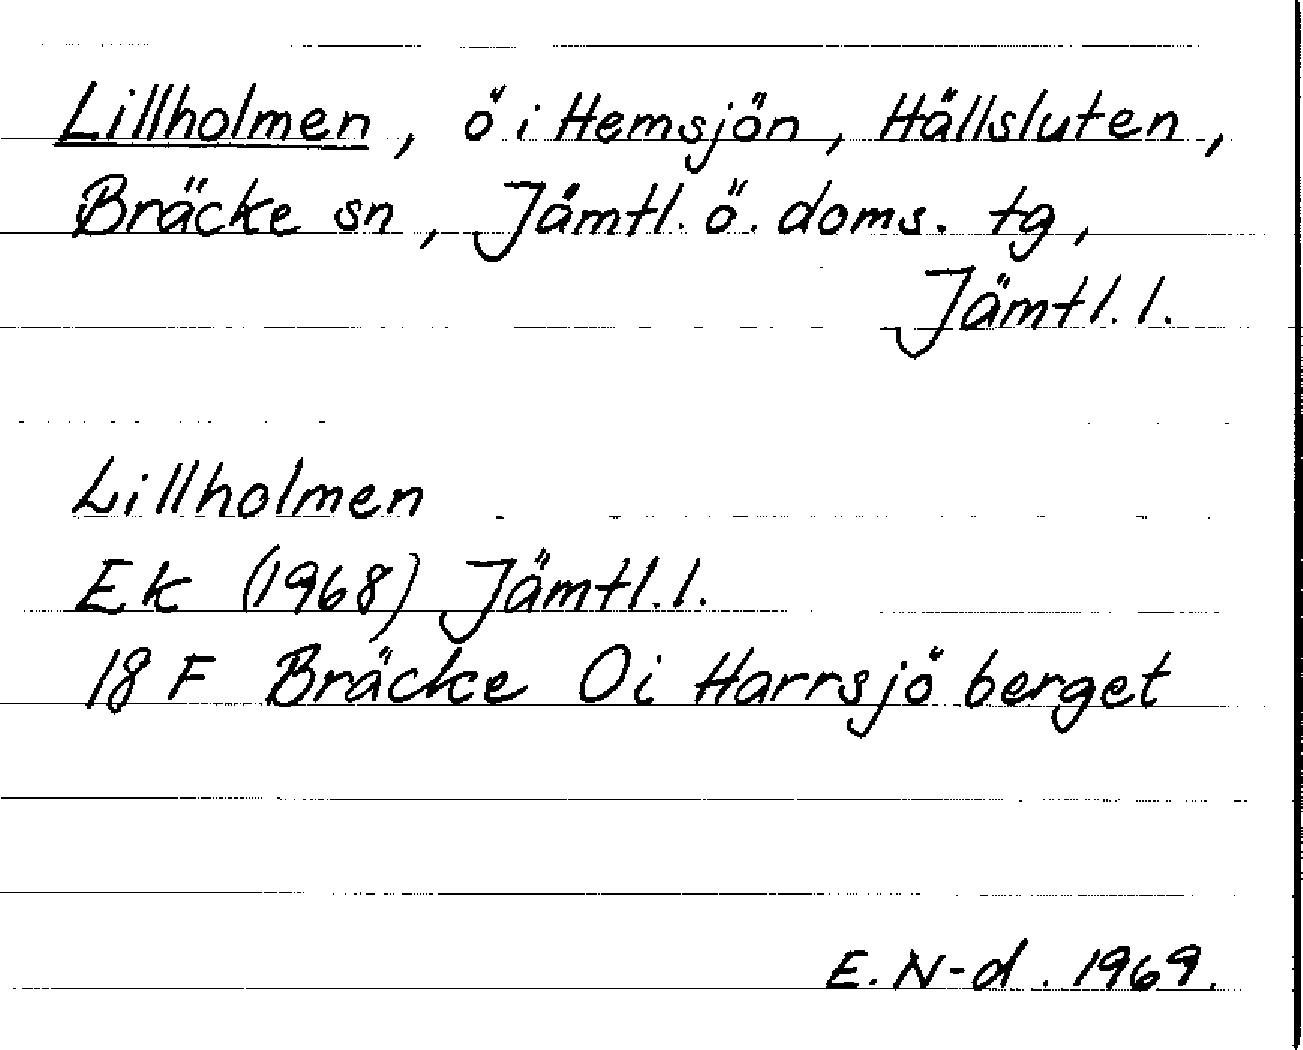 Lillholmen, ö i Hemsjön, Hällsluten,
Bräcke sn, Jämtl. ö. doms. tg,
Jämtl. l.
Lillholmen
Ek (1968) Jämtl. l.
18 F Bräcke Oi Harrsjöberget
E. N-d. 1969.